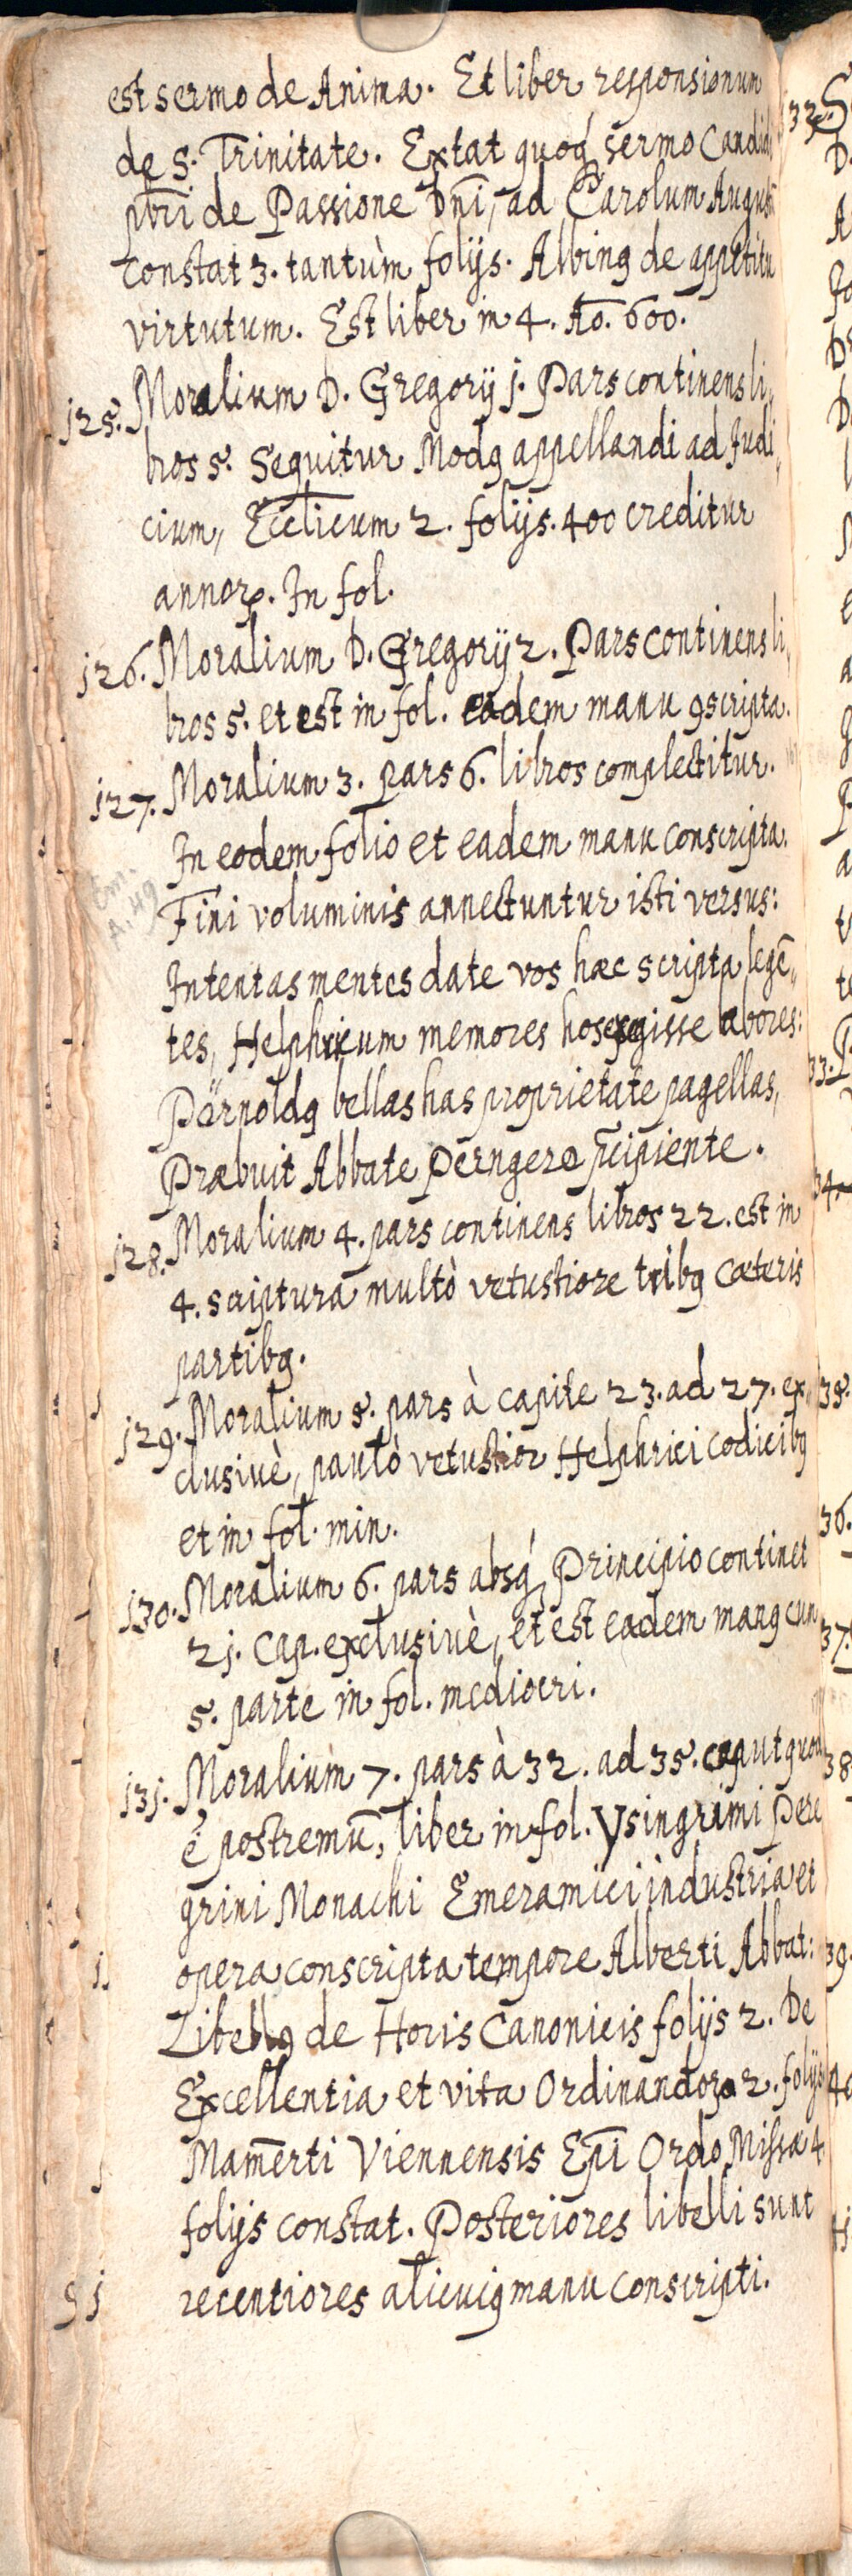 est sermo de Anima. Et liber responsionum
de S. Trinitate. Extat quoq́ sermo Candid
pbri de Passione Dni, ad Carolum August
constat 3. tantùm folijs. Albinꝰ de appetitu
virtutum. Est liber in 4. Ao. 600.
125. Moralium D. Gregorij j. Pars continens li„
bros 5. Sequitur Modꝰ appellandi ad Judi„
cium, Ecclicum 2. folijs. 400 creditur
annoꝝ. In fol.
126. Moralium D. Gregorij 2. Pars continens li„
bros 5. et est in fol. eadem manu ꝯscripta.
127. Moralium 3. pars 6. libros complectitur.
In eodem folio et eadem manu conscripta.
Em.
A. 49
Fini voluminis annectuntur isti versus:
Intentas mentes date vos hæc scripta legē„
tes, Helphricum memores hos egisse labores:
Pernoldꝰ bellas has proprietate pagellas,
Præbuit Abbate Perngero p̄cipiente.
128. Moralium 4. pars continens libros 22. est in
4. scriptura multò vetustiore tribꝰ cæteris
partibꝰ.
129. Moralium 5. pars à capite 23. ad 27. ex„
clusiuè, paulò vetustior Helphrici codicibꝰ
et in fol. min.
130. Moralium 6. pars absq́ Principio continet
2j. Cap. exclusiuè, et est eadem manꝰ cum
5. parte in fol. mediocri.
13j. Moralium 7. pars à 32. ad 35. caput quod
ē postremū, liber in fol. Ysingrimi Pere
grini Monachi Emeramici industria et
opera conscripta tempore Alberti Abbat:
Libellꝰ de Horis Canonicis folijs 2. De
Excellentia et vita Ordinandoꝝ 2. folijs
Mamerti Viennensis Epi Ordo Missæ 4
folijs constat. Posteriores libelli sunt
recentiores alicuiꝰ manu conscripti.